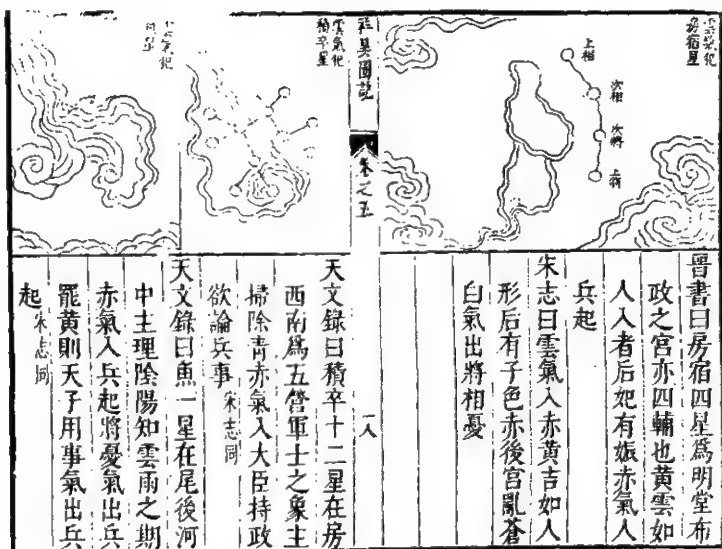 雲氣犯
房宿星
上相
次相
次將
上將
晉書曰房宿四星爲明堂布
政之宮亦四輔也黃雲如
人入者后妃有娠赤氣人
兵起
宋志曰雲氣入赤黃吉如人
形后有子色赤後宮亂蒼
白氣出將相憂
祥異圖說
卷之五
一八
雲氣犯
積卒星
天文錄曰積卒十二星在房
西南爲五營軍士之象主
掃除青赤氣入大臣持政
欲論兵事 宋志同
雲氣犯
天文錄曰魚一星在尾後河
中主理陰陽知雲雨之期
赤氣入兵起將憂氣出兵
罷黃則天子用事氣出兵
起 宋志同